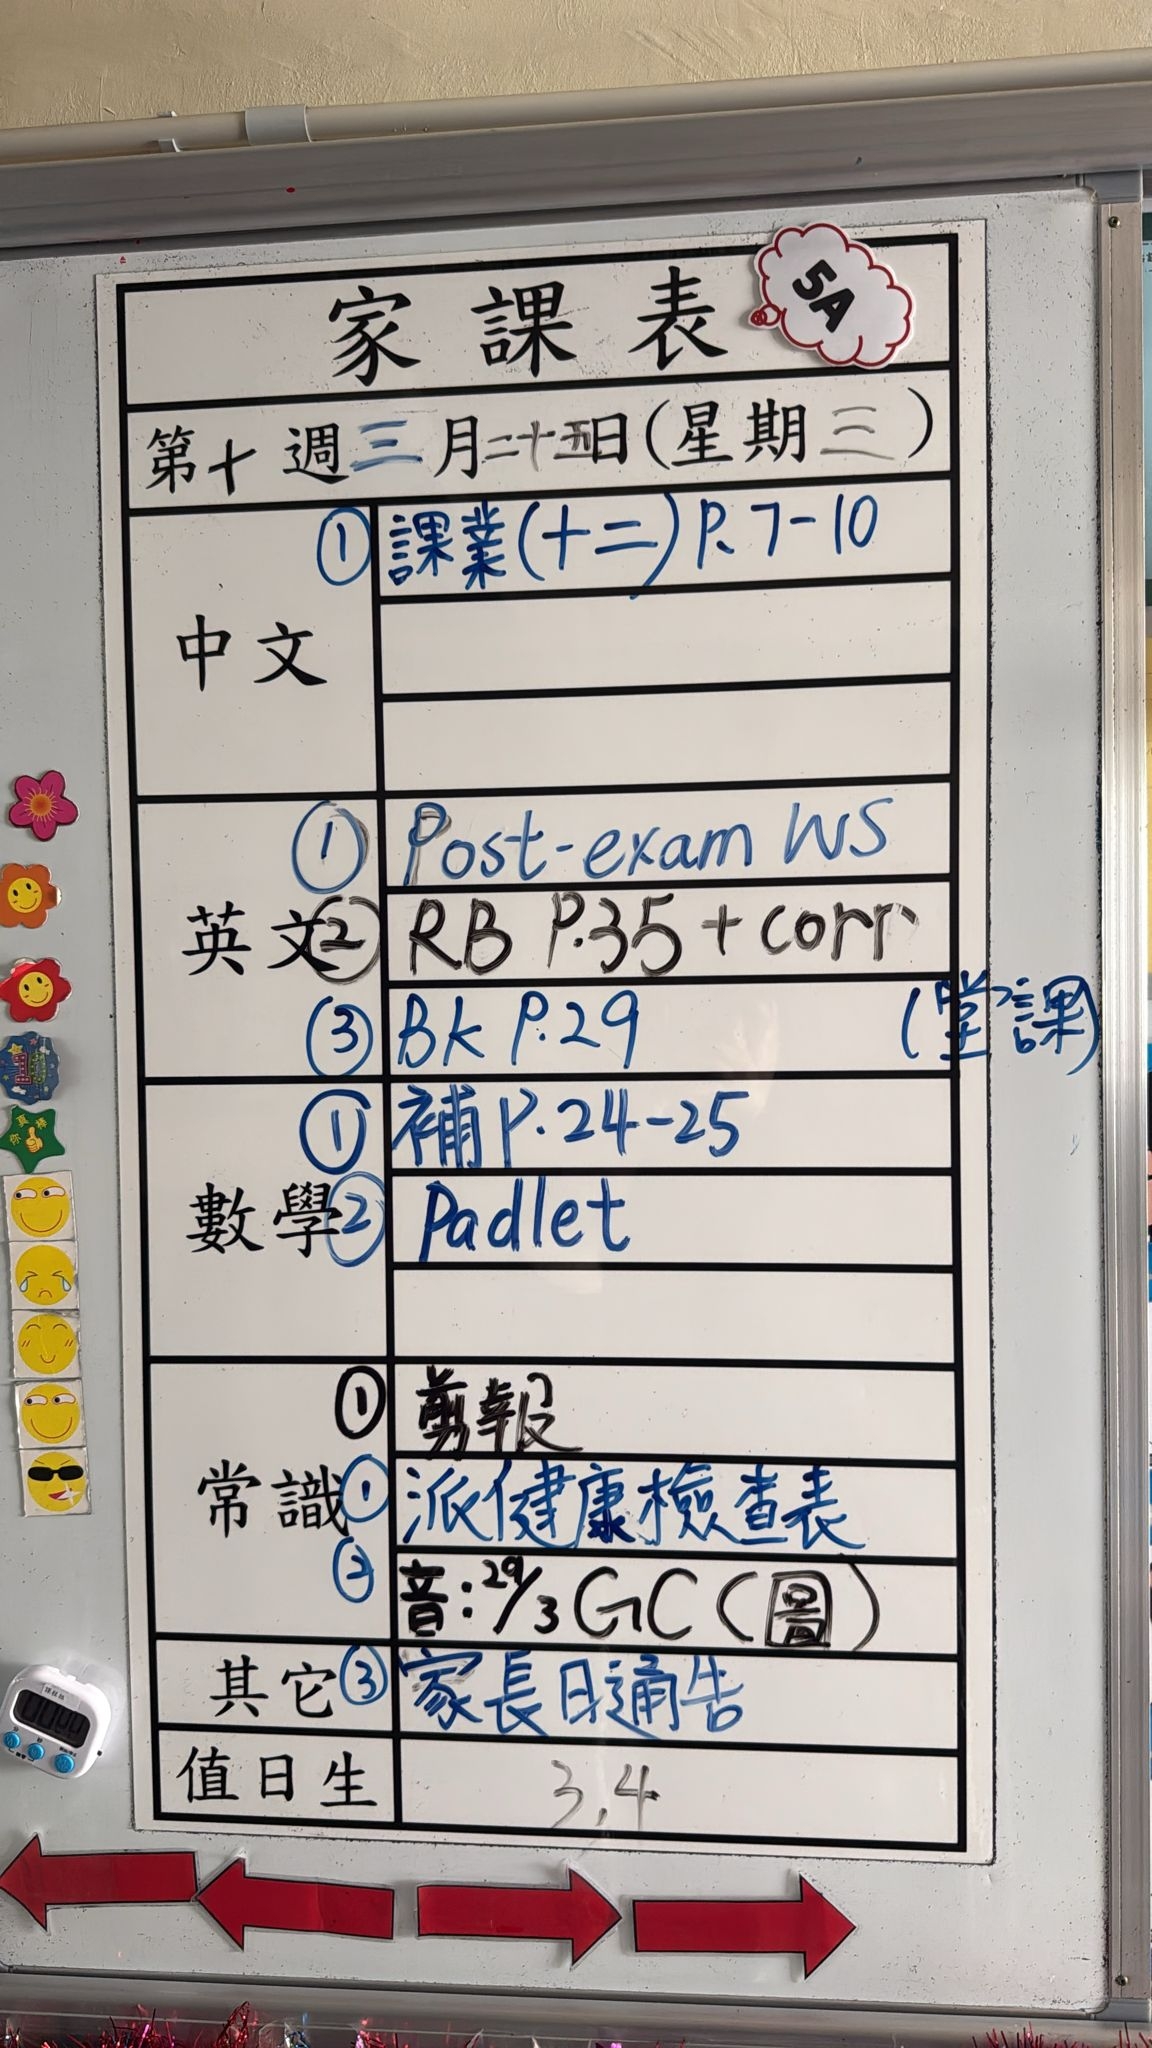 家課表
5A
第十週三月二十五日(星期三)
中文
① 課業(十二)P.7-10
英文
① Post-exam WS
② RB P.35 + corr
③ BK P.29 (堂課)
數學
① 補 P.24-25
② Padlet
常識
① 剪報
① 派健康檢查表
② 音:29/3 GC (圖)
其它
③ 家長日通告
值日生
3,4
你真棒